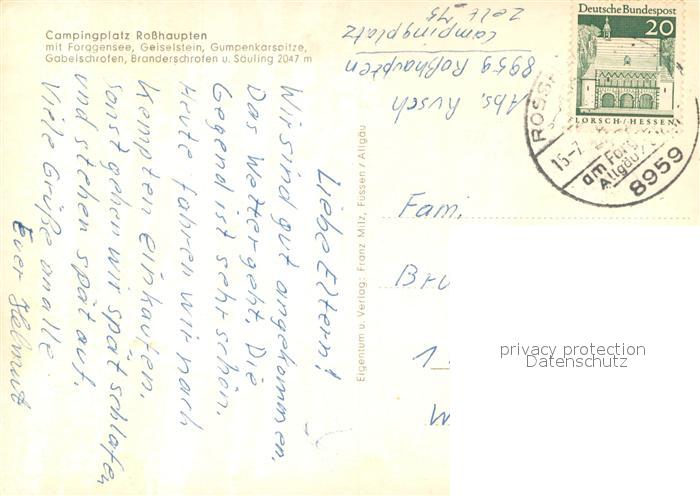 Campingplatz Roßhaupten
mit Forggensee, Geiselstein, Gumpenkarspitze,
Gabelschrofen, Branderschrofen u. Säuling 2047 m
Liebe Eltern!
Wir sind gut angekommen.
Das Wetter geht. Die
Gegend ist sehr schön.
Heute fahren wir nach
Kempten einkaufen.
sonst gehen wir spät schlafen
und stehen spät auf.
Viele Grüße an alle
Euer Helmut
Eigentum u. Verlag: Franz Milz, Füssen / Allgäu
Abs. Rusch
8959 Roßhaupten
Campingplatz
Zelt 75
Deutsche Bundespost
20
LORSCH / HESSEN
ROSSH
15.-7
am Forg
Allgäu
8959
Fam.
Bru
1
W
privacy protection
Datenschutz